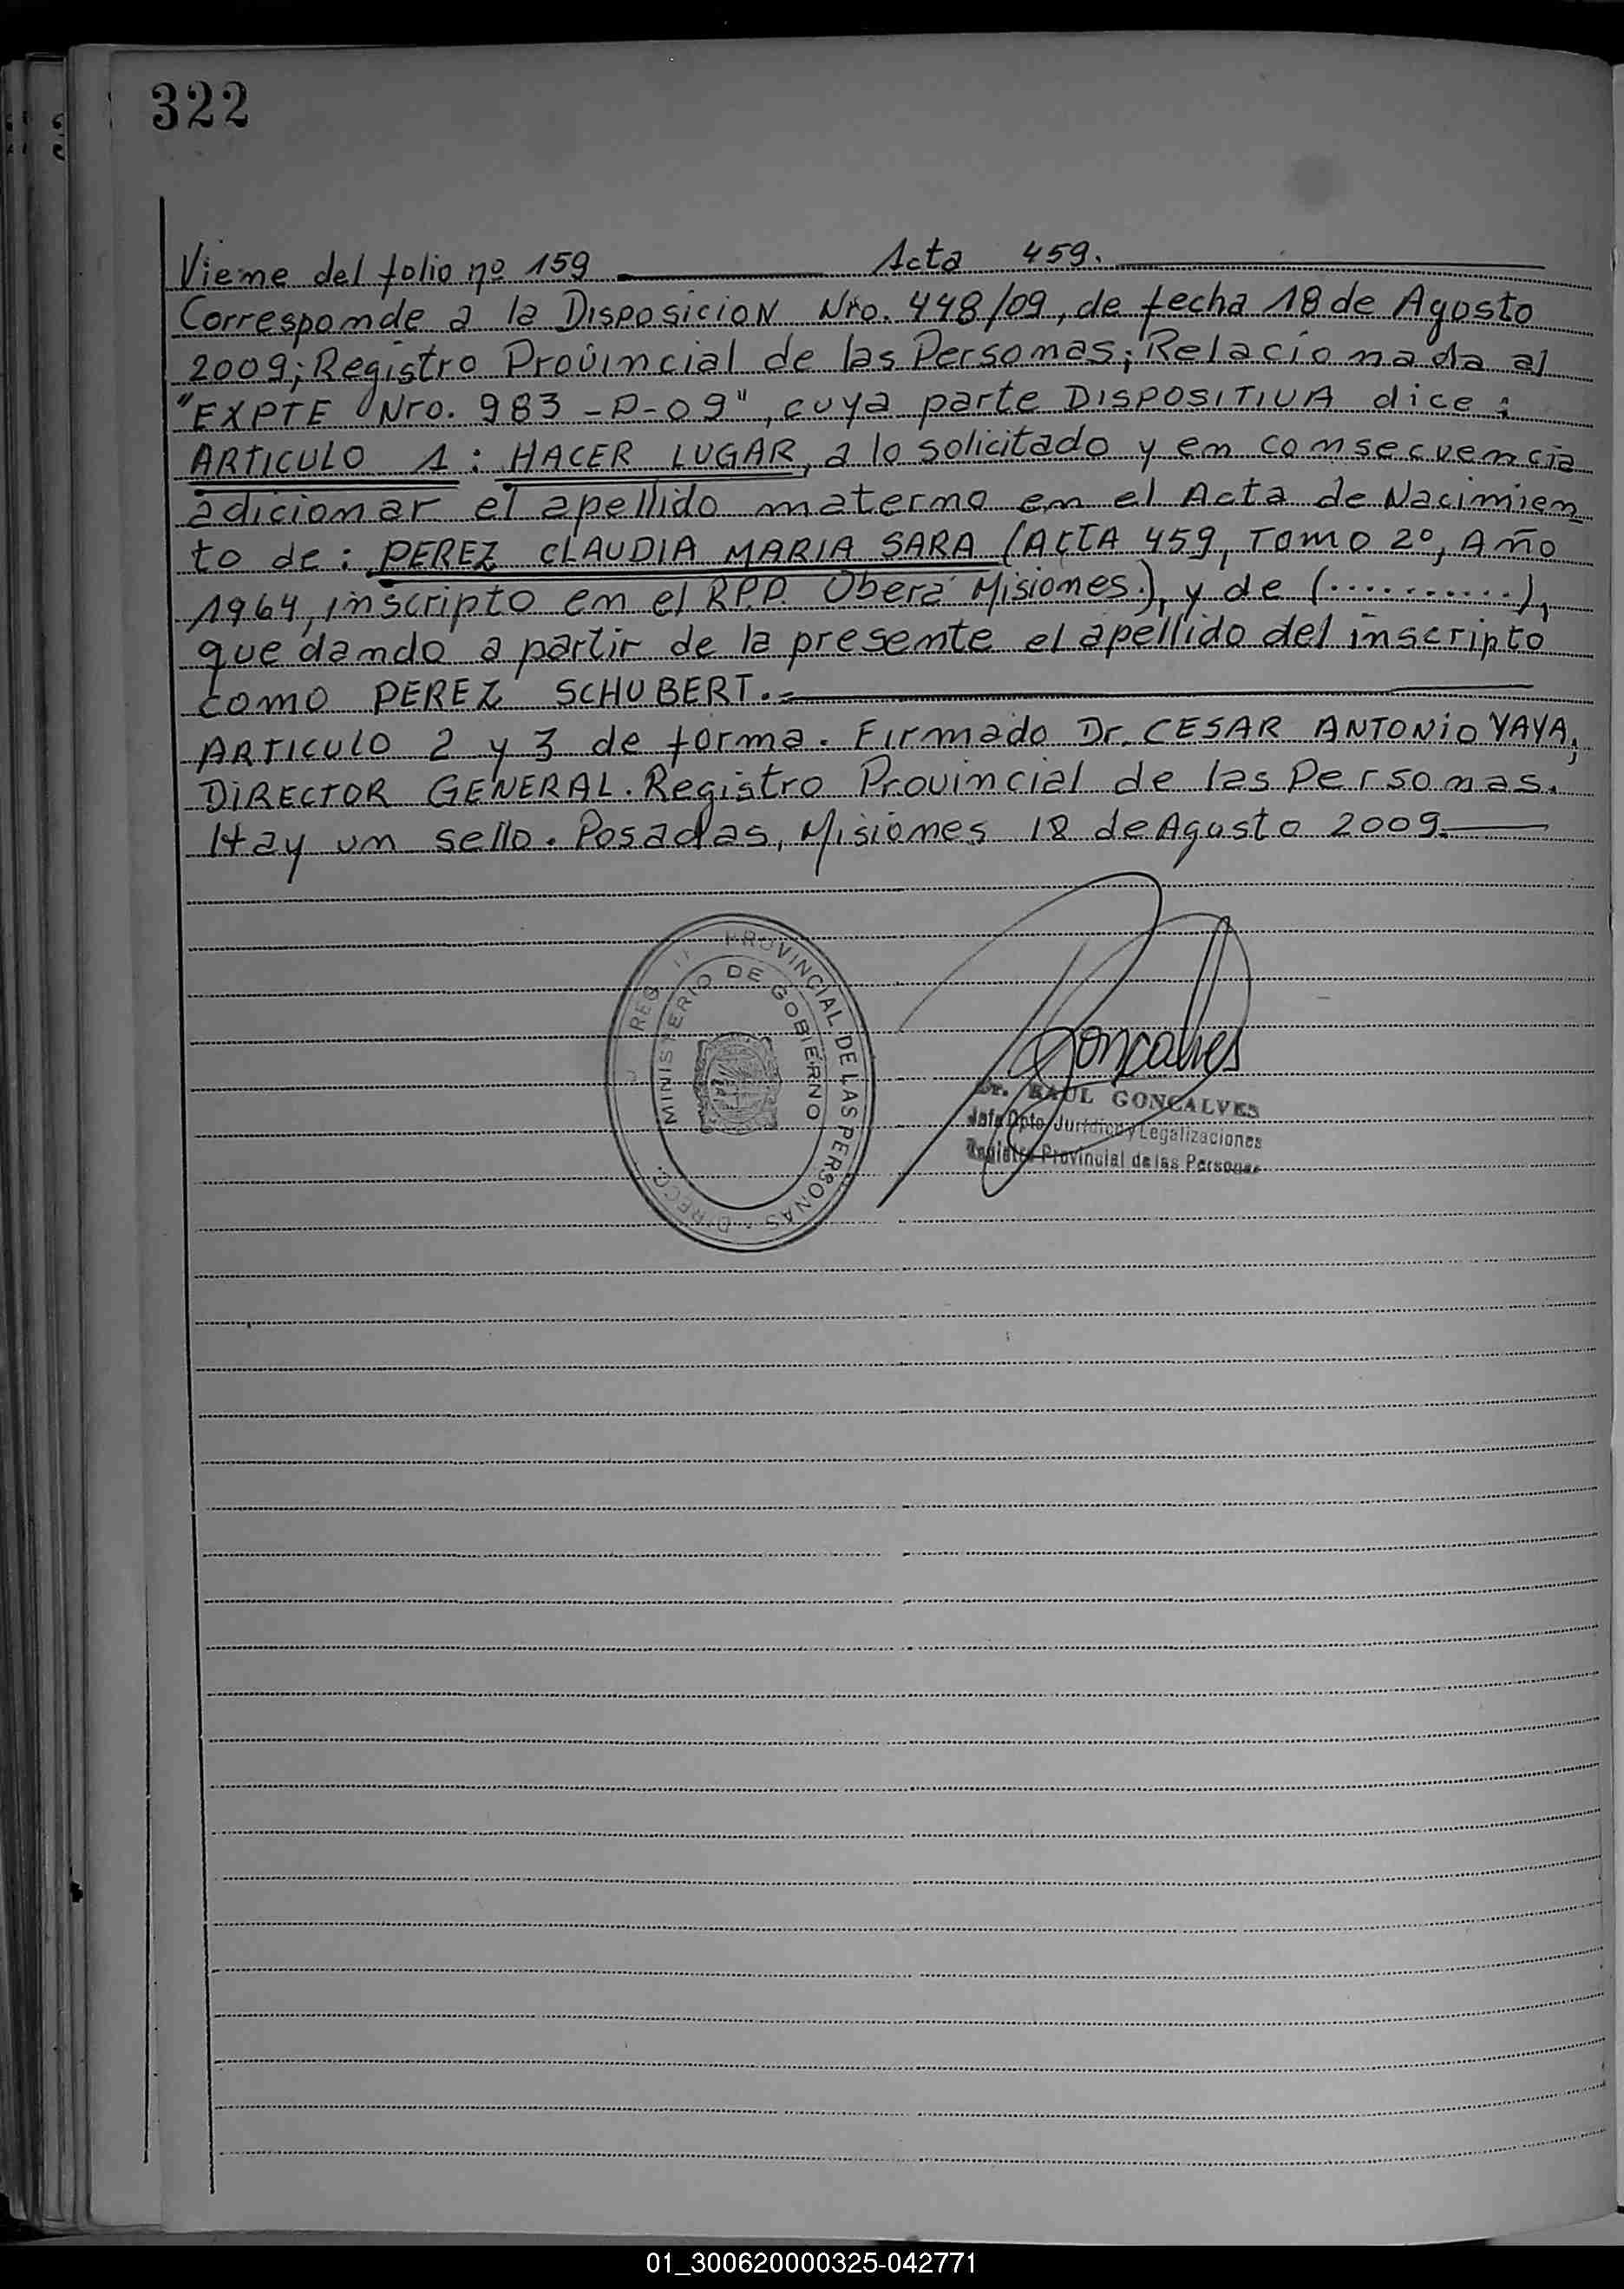 322
Viene del folio nº 159 Acta 459.
Corresponde a la DISPOSICION Nro. 448/09, de fecha 18 de Agosto
2009; Registro Provincial de las Personas; Relacionada al
"EXPTE Nro. 983-P-09", cuya parte DISPOSITIVA dice:
ARTICULO 1: HACER LUGAR, a lo solicitado y en consecuencia
adicionar el apellido materno en el Acta de Nacimien
to de: PEREZ CLAUDIA MARIA SARA (ACTA 459, TOMO 2º, Año
1964, inscripto en el R.P.P. Oberá Misiones.), y de (...........),
quedando a partir de la presente el apellido del inscripto
como PEREZ SCHUBERT.=
ARTICULO 2 y 3 de forma. Firmado Dr. CESAR ANTONIO YAYA,
DIRECTOR GENERAL. Registro Provincial de las Personas.
Hay un sello. Posadas, Misiones 18 de Agosto 2009.
PROVINCIAL DE LAS PERSONAS
MINISTERIO DE GOBIERNO
Goncalves
Dr. RAUL GONCALVES
Jefe Dpto. Jurídico y Legalizaciones
Registro Provincial de las Personas
01_300620000325-042771